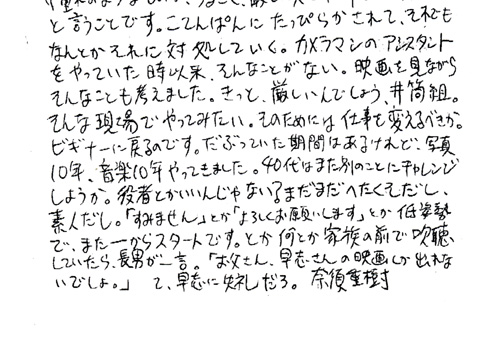 と言うことです。こてんぱんにたっぴらかされて、それでも
なんとかそれに対処していく。カメラマンのアシスタント
をやっていた時以来、そんなことがない。映画を見ながら
そんなことも考えました。きっと、厳しいんでしょう、井筒組。
そんな現場でやってみたい。そのためには仕事を変えるべきか。
ビギナーに戻るのです。だぶっていた期間はあるけれど、写真
10年、音楽10年やってきました。40代はまた別のことにチャレンジ
しようか。役者とかいいんじゃない?まだまだへたくそだし、
素人だし。「すみません」とか「よろしくお願いします」とか低姿勢
で、また一からスタートです。とか何とか家族の前で吹聴
していたら、長男が一言。「お父さん、早志さんの映画しか出れな
いでしょ。」 て、早志に失礼だろ。 奈須重樹